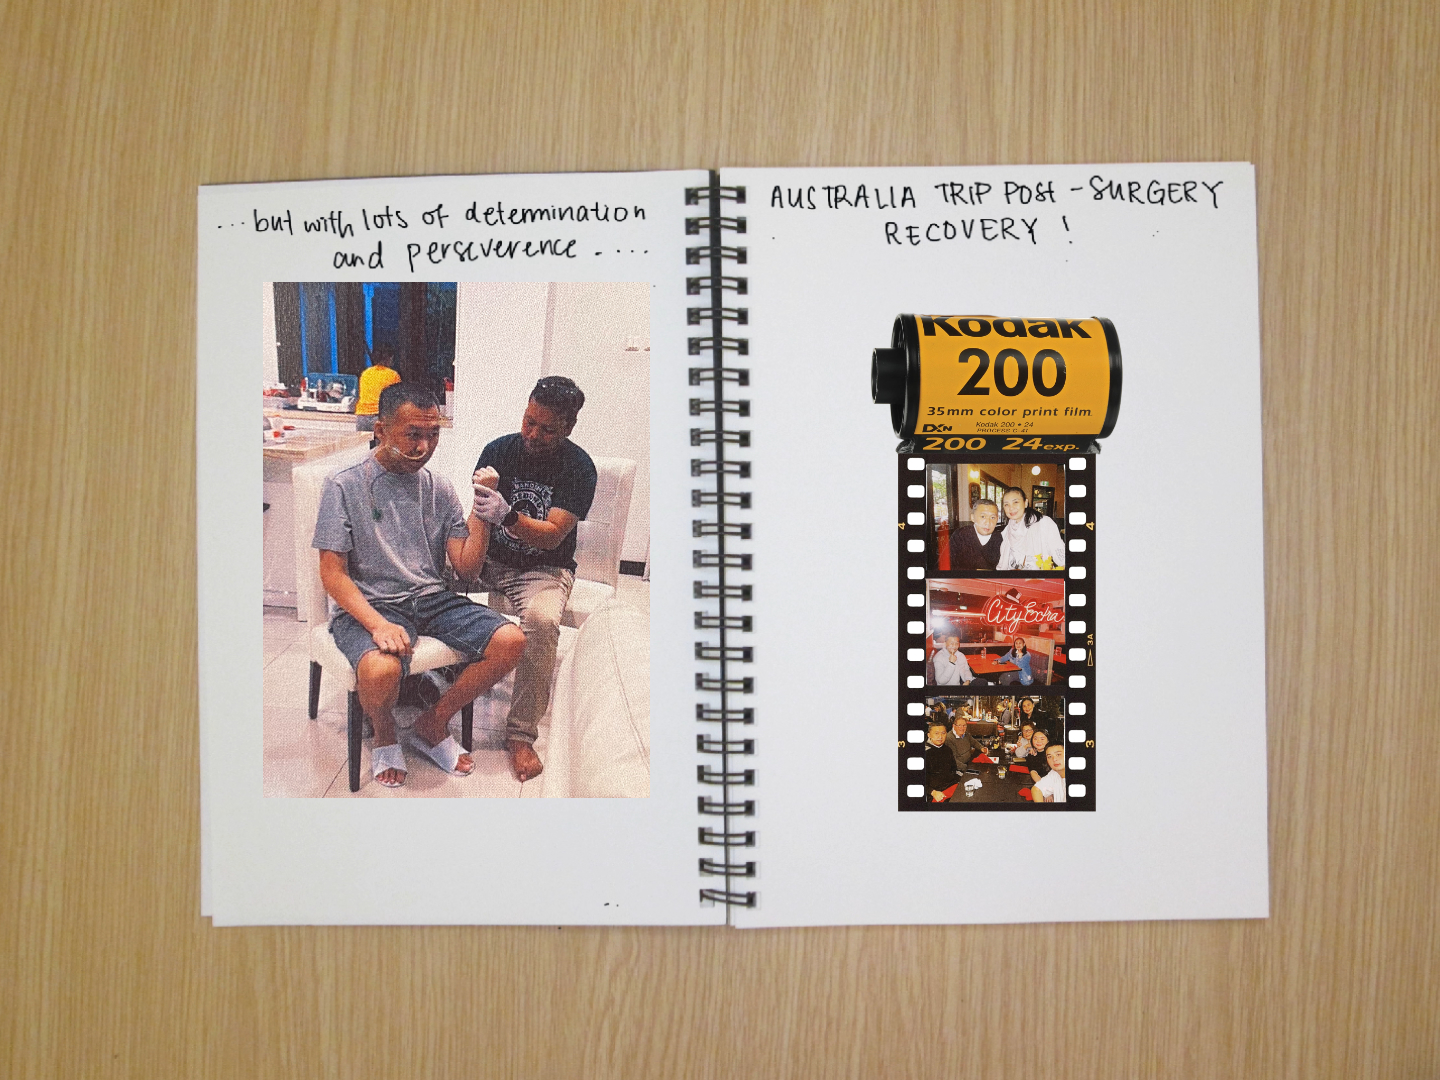 ...but with lots of determination
and perseverence.....
AUSTRALIA TRIP POST-SURGERY
RECOVERY !
Kodak
200
35mm color print film
DXN
Kodak 200 • 24
PROCESS C-41
200 24exp.
4 4
City Extra
3A
3 3